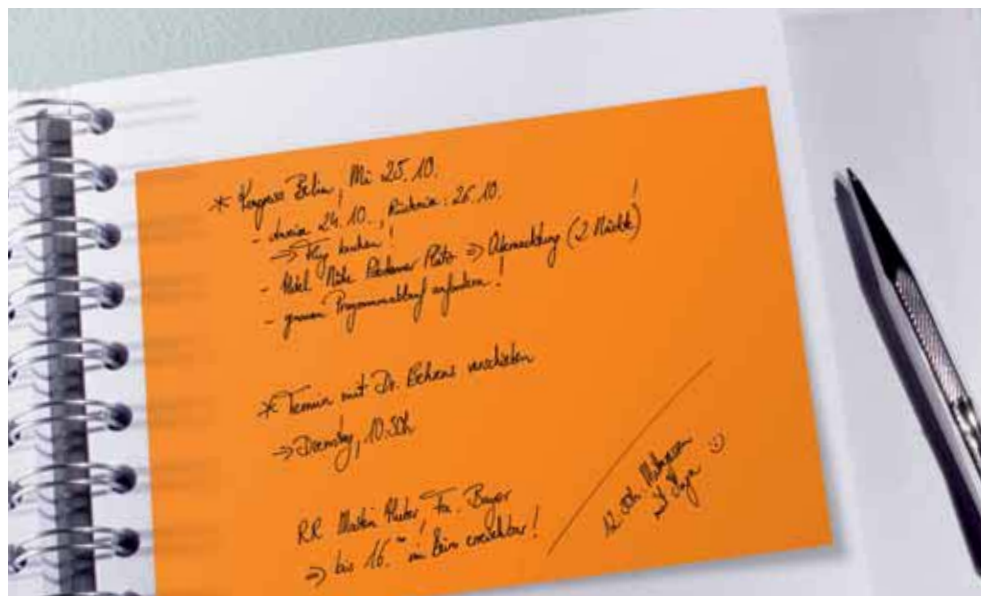 * Kongress Berlin, Mi 25.10.
- Anreise 24.10., Rückreise: 26.10.
=> Flug buchen!
- Hotel Nähe Potsdamer Platz => Übernachtung (2 Nächte)!
- genauen Programmablauf anfordern!
* Termin mit Dr. Behrens verschieben
=> Dienstag, 10.30h
RR Martin Huber, Fa. Bayer
=> bis 16.⁰⁰ im Büro erreichbar!
12.30h
mit :)